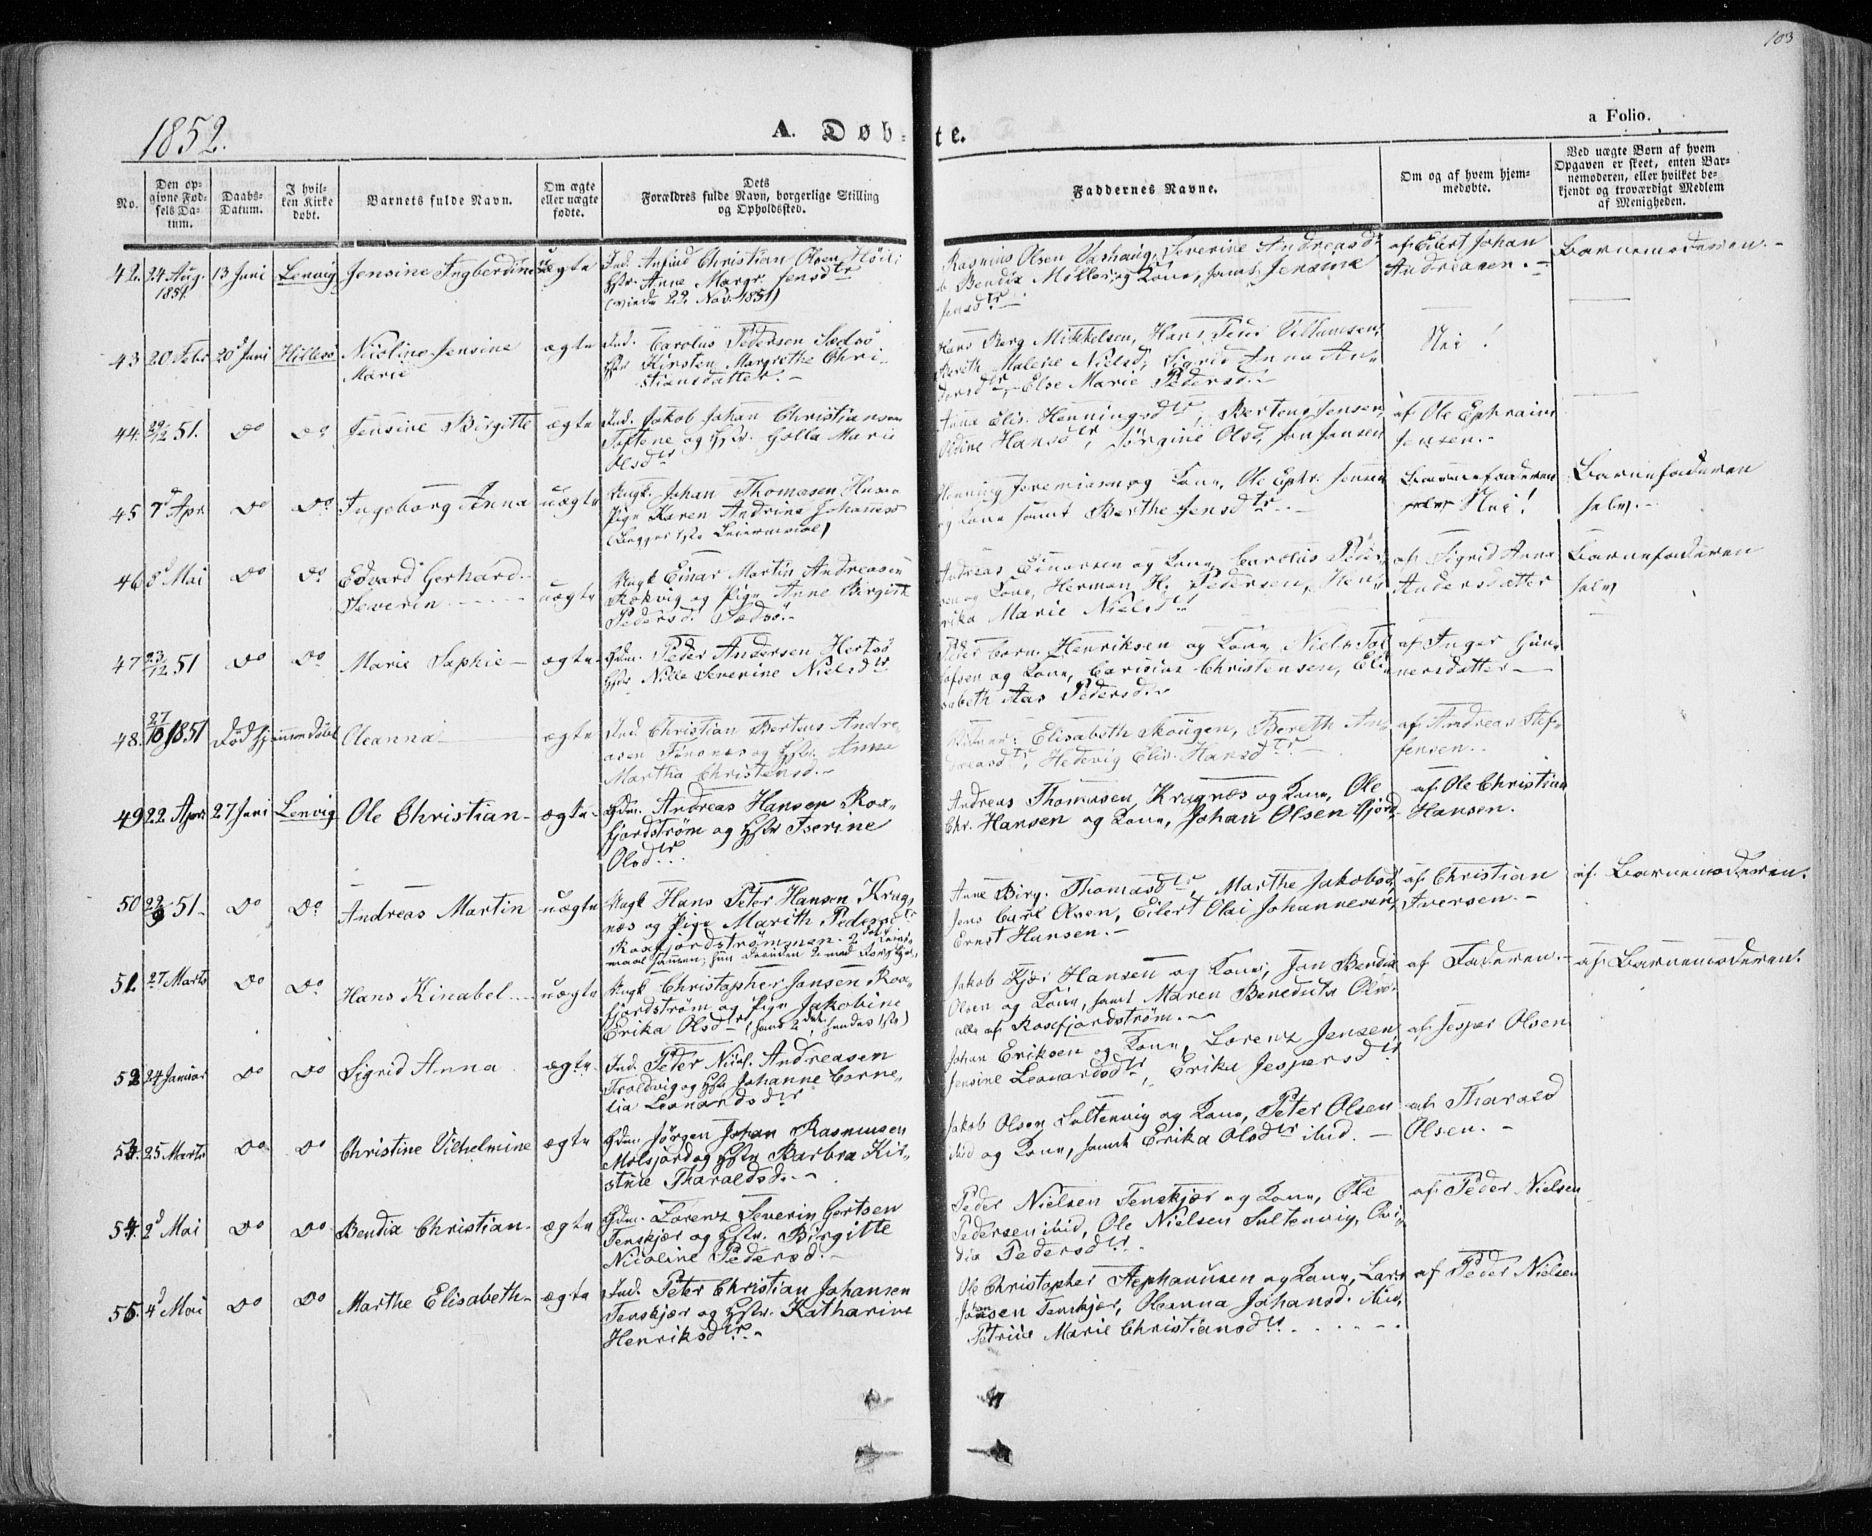 103
1852.
A. Døb-te.
a Folio.
No.
Den op-
givne Fød-
sels Da-
tum.
Daabs-
Datum.
I hvil-
ken Kirke
døbt.
Barnets fulde Navn.
Om ægte
eller uægte
fødte.
Dets
Forældres fulde Navn, borgerlige Stilling
og Opholdsted.
Faddernes Navne.
Om og af hvem hjem-
medøbte.
Ved uægte Børn af hvem
Opgaven er skeet, enten Bar-
nemoderen, eller hvilket be-
kjendt og troværdigt Medlem
af Menigheden.
42. 24 Aug. 1851 13 Juni Lenvig Jensine Ingberdine uægte
Ind. Christian Olsen
Anne Margr. Jensdtr
(viede 22. Nov. 1851)
Rasmus Olsen Severine Andreasdr
Bendix Møller og Kone, samt Jensine
Jensdtr
af Eilert Johan
Andreasen.
Barnemoderen.
43 20 Febr 20d Juni Hillesø Nicoline Jensine
Marie
ægte
Ind. Carolus Pedersen Sædsø
Hstr Kirsten Margrethe Chri-
stiansdatter.
Hans Berg Mikkelsen, Hans Peder Villumsen,
Bereth Malene Nielsd, Sigrid Anna An-
dersdtr, Else Marie Pedersd.
Nei!
44. 29/12 51. Do Do Jensine Birgitte ægte
Ind. Jakob Johan Christiansen
Toftene og Hstr. Golla Marie
Olsdtr
Anna Elis. Henningsdtr, Bertens Jensen,
Oldine Hansdtr, Jørgine Olsd, Jon Jensen
af Ole Ephraim
Jensen.
45 7d Apr Do Do Ingeborg Anna uægte
Ungk. Johan Thomasen
Pige Karen Andrine Johansd
(Begges 1ste Leiermaal)
Henning Jeremiasen og Kone, Ole Ephr. Jensen
og Kone samt Berthe Jensdtr.
Barnefaderen
selv Nei!
Barnefaderen
selv.
46 8d Mai Do Do Edvard Gerhard
Severin
uægte
Ungk Einar Martin Andreasen
Rækvig og Pige Anne Birgitte
Pedersd. Sædsø.
Andreas Einarsen og Kone, Carolus Peder-
sen og Kone, Herman H. Pedersen, Hen-
rika Marie Nielsdtr
af Sigrid Anna
Andersdatter
Barnefaderen
selv
47 23/12 51 Do Do Marie Sophie ægte
Gdm. Peder Andersen Hersø
Hstr Severine Nielsdtr
Peder Corn. Henriksen og Kone, Niels Tol-
lefsen og Kone, Carisius Christensen, Eli-
sabeth Aas Pedersd.
af Inger Gun-
nersdatter
48. 27/10 1851 Død hjemmedøbt Oleanna ægte
Ind Christian Bertus Andre-
asen og Hstr. Anne
Martha Christensd.
Elisabeth Skougen, Bereth An-
dreasdtr, Hedevig Elis. Hansdtr
af Andreas Stef-
fensen.
49 22 April 27 Juni Lenvig Ole Christian ægte
Gdm. Andreas Hansen Ros-
fjordstrøm og Hstr Iserine
Olsdtr.
Andreas Thomasen Kragnes og Kone, Ole
Chr. Hansen og Kone, Johan Olsen Gjord
af Ole Christian
Hansen.
50 22/9 51 Do Do Andreas Martin uægte
Ungk Hans Peter Hansen Krag-
næs og Pige Marith Pedersdtr
Rosfjordstrømmen.
Anne Birg. Thomasdtr, Marthe Jakobsd,
Jens Carl Olsen, Eilert Olai Johannesen,
Ernst Hansen.
af Christian
Iversen.
af Barnemoderen.
51. 27 Marts Do Do Hans Kinabel uægte
Ungk Christopher Jansen Ros-
fjordstrøm og Pige Jakobine
Erika Olsdtr (hans 2det, hendes 1ste)
Jakob Kjær Hansen og Kone, Jon Bendix
Olsen og Kone, samt Maren Benedicte Olsd.
alle af Rosefjordstrøm.
af Faderen.
af Barnemoderen.
52 24 Januar Do Do Sigrid Anna ægte
Ind. Peter Nicol. Andreasen
Troldvig og Hstr Johanne Corne-
lia Leonardsdtr
Johan Eriksen og Kone, Lorenz Jensen,
Jensine Leonardsdtr, Erika Jespersdtr
af Jesper Olsen
53. 25 Marts Do Do Christine Vilhelmine ægte
Gdm Jørgen Johan Rasmusen
Malsjord og Hstr Barbra Kir-
stine Tharaldsd.
Jakob Olsen Sultenvig og Kone, Peter Olsen
ibid og Kone, samt Erika Olsdtr ibid.
af Tharald
Olsen.
54. 2d Mai Do Do Bendix Christian ægte
Gdm. Lorenz Severin Gertsen
Tenskjær og Hstr. Birgitte
Nicoline Pedersd.
Peder Nielsen Tenskjær og Kone, Ole
Pedersen ibid, Ole Nielsen Sultenvig,
Pedersdtr.
af Peder Nielsen
55. 4d Mai Do Do Marthe Elisabeth ægte
Ind. Peter Christian Johansen
Tenskjær og Hstr. Katharine
Henriksdtr.
Ole Christopher Stephansen og Kone, Lars
Johansen Tenskjær, Oleanna Johansd.
Petrine Marie Christiansdtr.
af Peder Nielsen